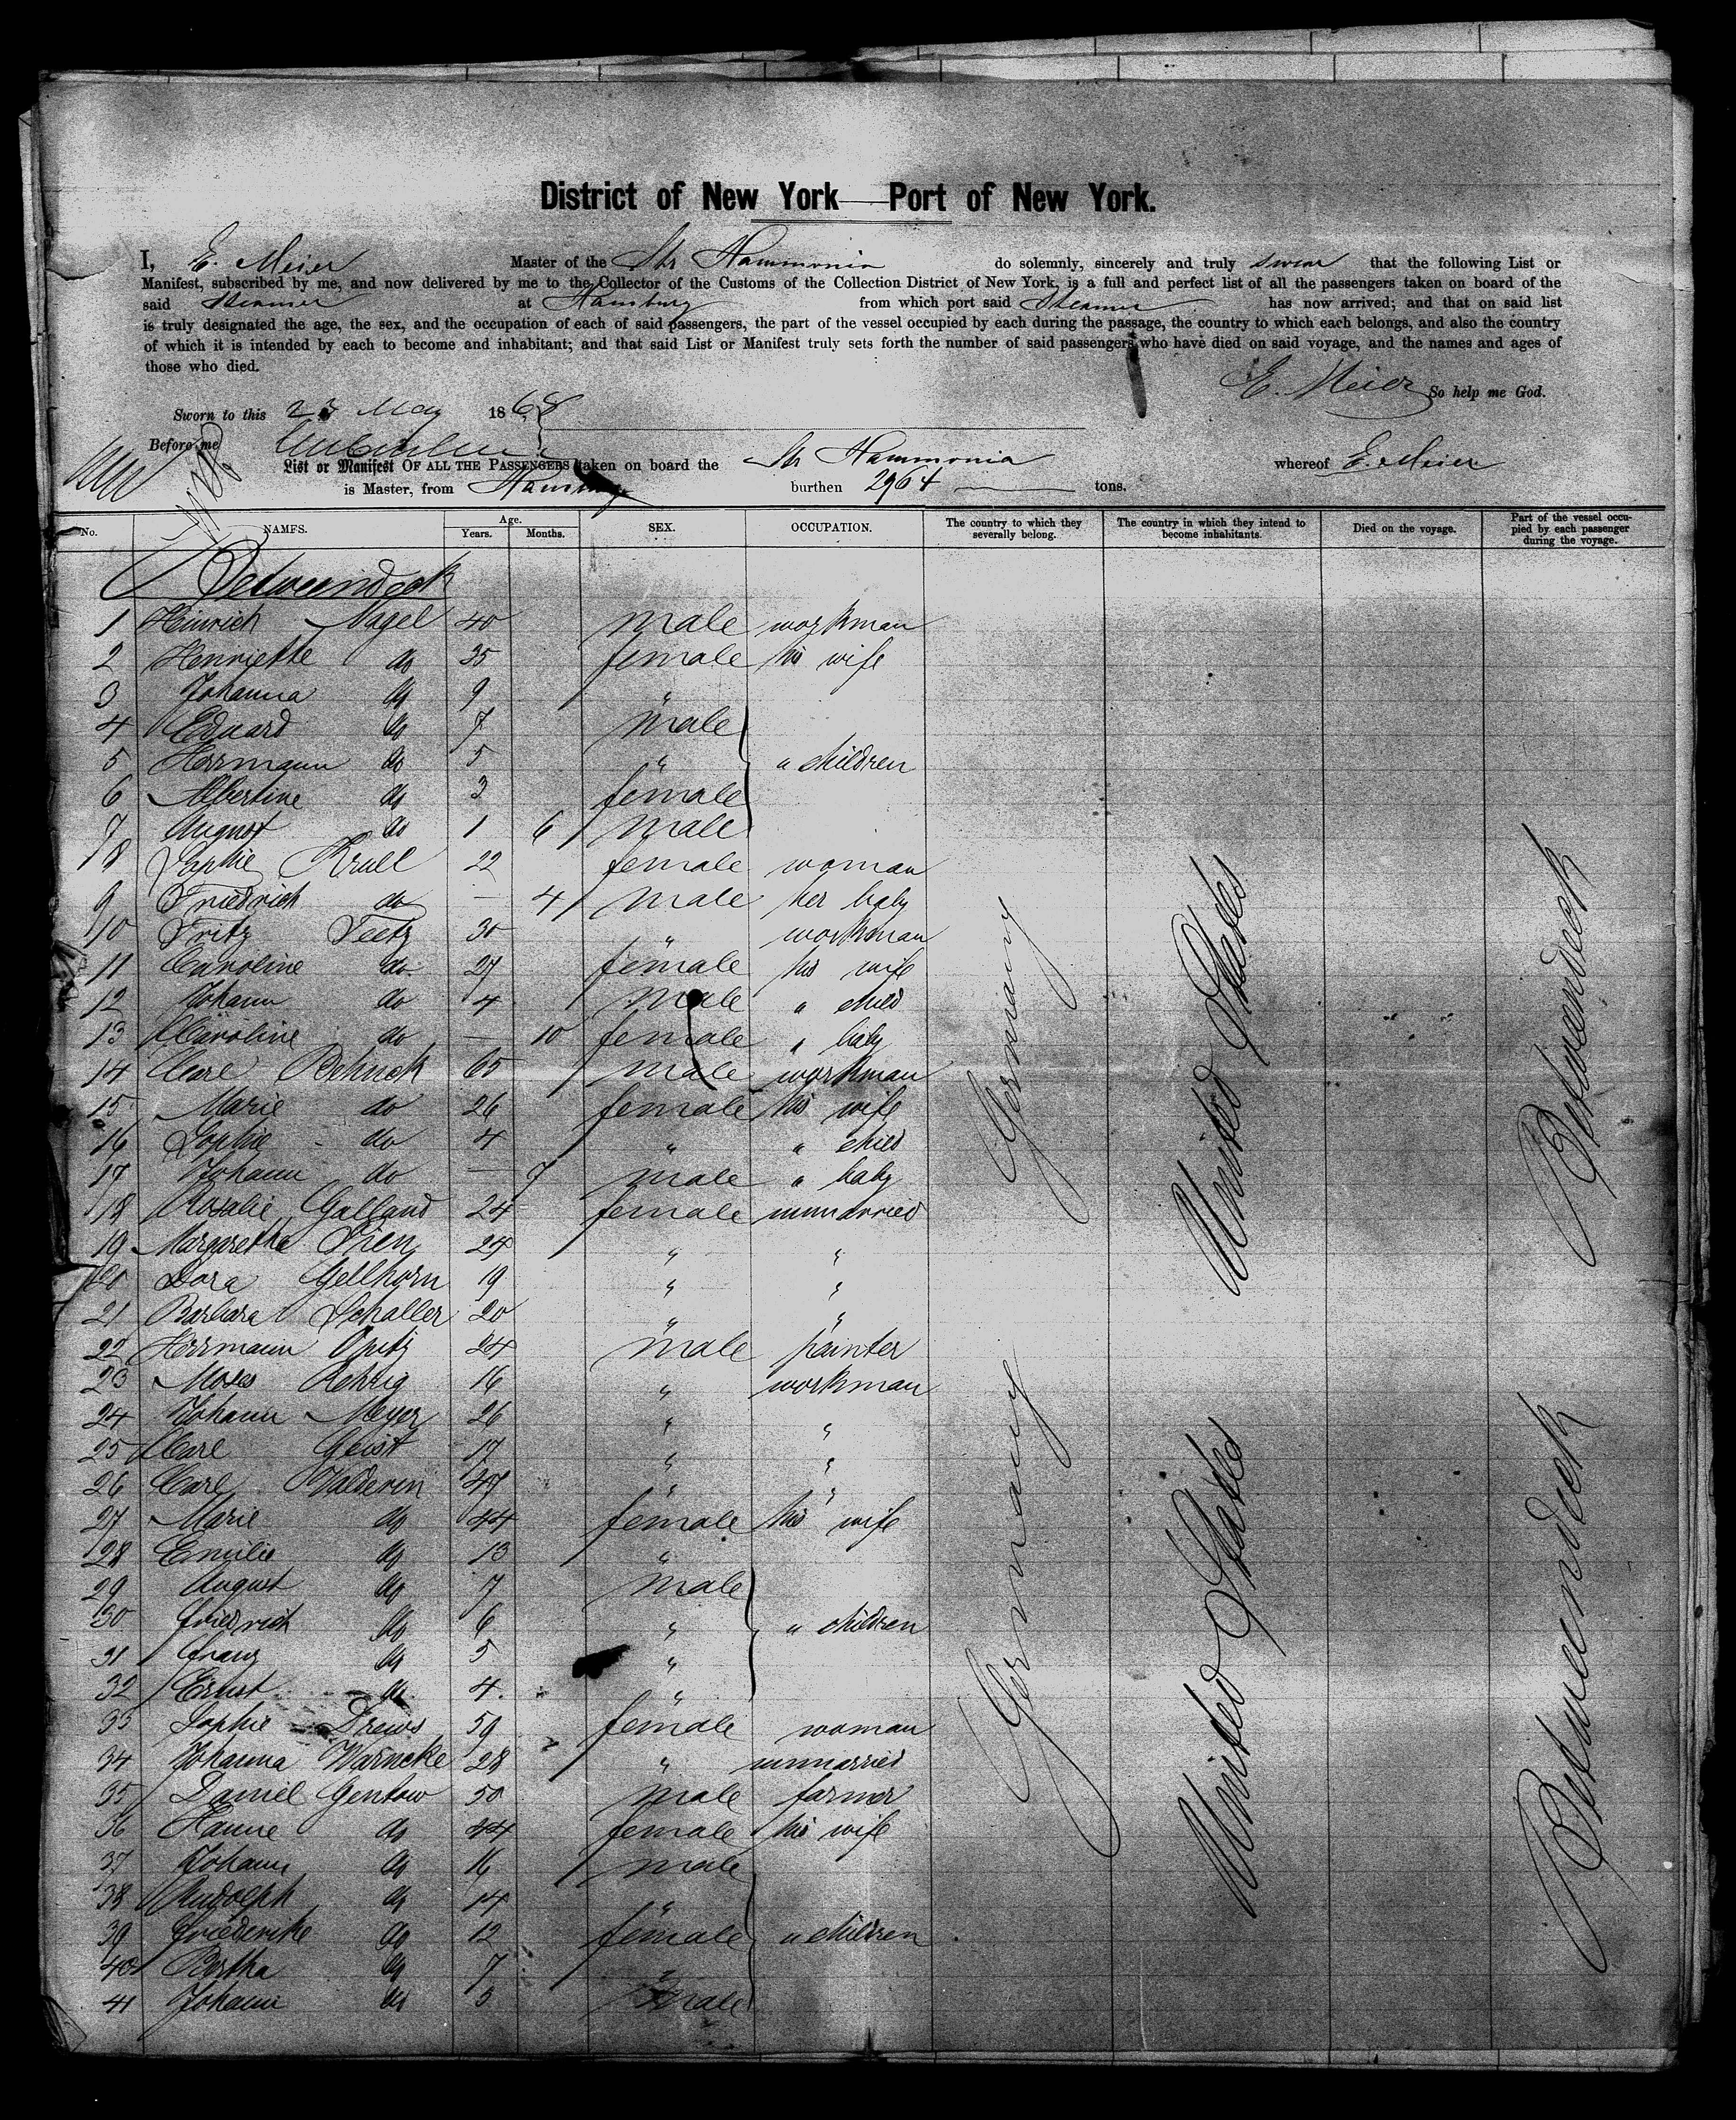 District of New York Port of New York.
I, E. Meier Master of the Str Hammonia do solemnly, sincerely and truly swear that the following List or
Manifest, subscribed by me, and now delivered by me to the Collector of the Customs of the Collection District of New York, is a full and perfect list of all the passengers taken on board of the
said Steamer at Hamburg from which port said Steamer has now arrived; and that on said list
is truly designated the age, the sex, and the occupation of each of said passengers, the part of the vessel occupied by each during the passage, the country to which each belongs, and also the country
of which it is intended by each to become and inhabitant; and that said List or Manifest truly sets forth the number of said passengers who have died on said voyage, and the names and ages of
those who died.
E. Meier So help me God.
Sworn to this 23 May 1868
Before me
List or Manifest OF ALL THE PASSENGERS taken on board the Str Hammonia whereof E. Meier
is Master, from Hamburg burthen 2964 tons.
No. NAMES. Age. Years. Months. SEX. OCCUPATION. The country to which they severally belong. The country in which they intend to become inhabitants. Died on the voyage. Part of the vessel occupied by each passenger during the voyage.
Betweendeck
1 Hinrich Nagel 40 male workman
2 Henriette do 35 female his wife
3 Johanna do 9 "
4 Eduard do 7 male
5 Herrmann do 5 " " children
6 Albertine do 3 female
7 August do 1 6 male
8 Sophie Krull 22 female woman
9 Friedrich do — 4 male her baby
10 Fritz Teetz 30 " workman
11 Caroline do 27 female his wife
12 Johann do 4 male " child
13 Caroline do — 10 female " baby
14 Carl Rehnck 65 male workman
15 Marie do 26 female his wife
16 Sophie do 4 " " child
17 Johann do — 7 male " baby
18 Rosalie Galland 24 female unmarried
19 Margaretha Thien 24 " "
20 Dora Gellhorn 19 " "
21 Barbara Schaller 20 " "
22 Herrmann Opitz 24 male painter
23 Moses Rehzig 16 " workman
24 Johann Meyer 26 " "
25 Carl Geist 17 " "
26 Carl Valdevin 47 " "
27 Marie do 44 female his wife
28 Emilie do 13 "
29 August do 7 male
30 Friedrich do 6 " " children
31 Franz do 5 "
32 Ernst do 4 "
33 Sophie Drews 59 female woman
34 Johanna Warncke 28 " unmarried
35 Daniel Gentow 50 male farmer
36 Hanne do 44 female his wife
37 Johann do 16 male
38 Rudolph do 14 "
39 Friederike do 12 female " children
40 Bertha do 7 "
41 Johann do 3 male
Germany
United States
Betweendeck
Germany
United States
Betweendeck